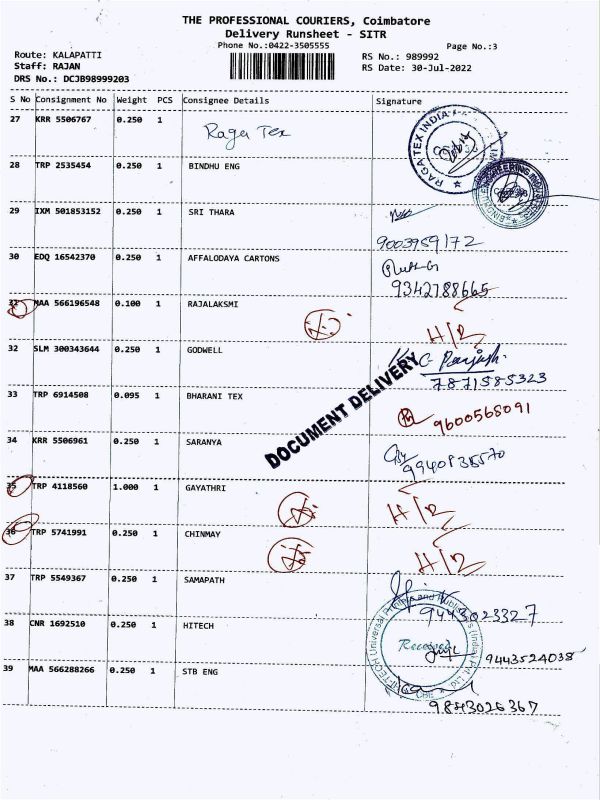 THE PROFESSIONAL COURIERS, Coimbatore
Delivery Runsheet - SITR
Phone No.:0422-3505555 Page No.:3
Route: KALAPATTI RS No.: 989992
Staff: RAJAN RS Date: 30-Jul-2022
DRS No.: DCJB98999203
S No Consignment No Weight PCS Consignee Details Signature
27 KRR 5506767 0.250 1 Raga Tex
RAGATEX INDIA
28 TRP 2535454 0.250 1 BINDHU ENG
29 IXM 501853152 0.250 1 SRI THARA
9003959172
30 EDQ 16542370 0.250 1 AFFALODAYA CARTONS
9342788665
31 MAA 566196548 0.100 1 RAJALAKSMI
H/R
32 SLM 300343644 0.250 1 GODWELL
7871585323
DOCUMENT DELIVERY
33 TRP 6914508 0.095 1 BHARANI TEX
9600568091
34 KRR 5506961 0.250 1 SARANYA
35 TRP 4118560 1.000 1 GAYATHRI
H/R
36 TRP 5741991 0.250 1 CHINMAY
H/R
37 TRP 5549367 0.250 1 SAMAPATH
9443023327
38 CNR 1692510 0.250 1 HITECH
Received
9443524038
39 MAA 566288266 0.250 1 STB ENG
9843026367